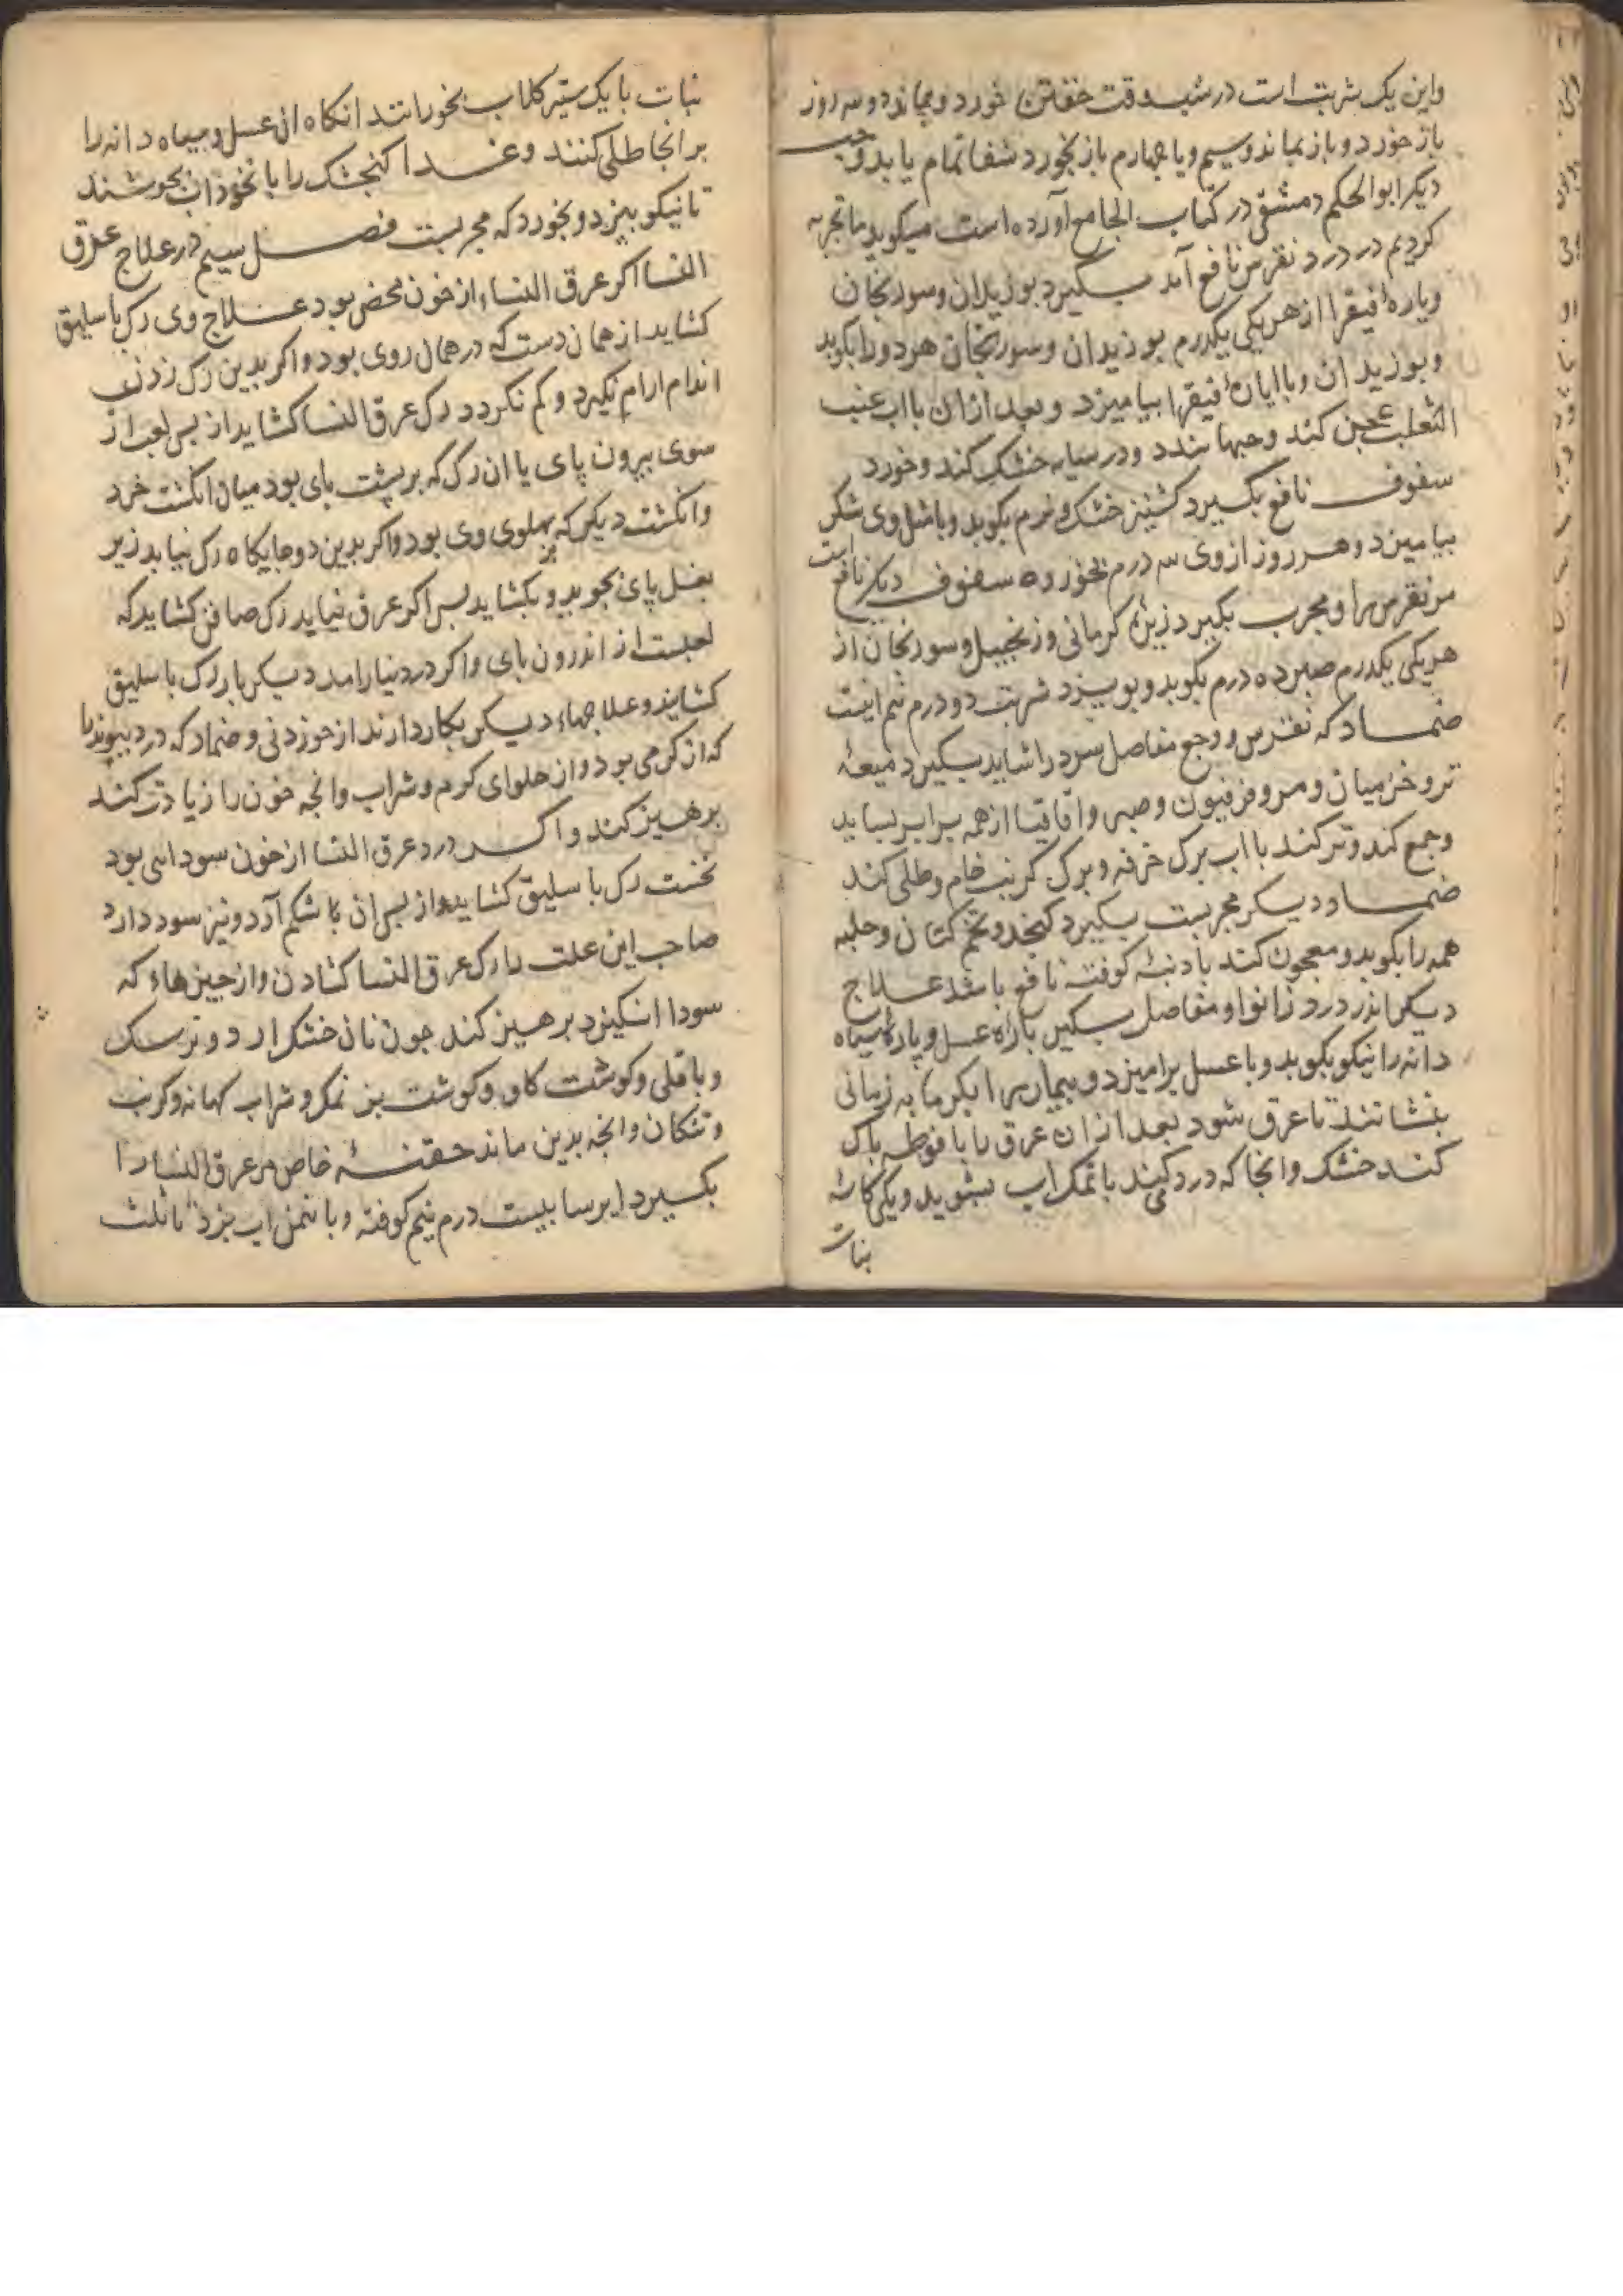 واین یک شربت است در شب وقت خفتن خورد و بماند دو سه روز
باز خورد و باز بماند و سیم و یا چهارم باز بخورد شفا تمام یابد و حب
دیکر ابو الحکم دمشقی در کتاب الجامع آورده است میکوید ما تجربه
کردیم در درد نقرس نافع آمد بکیرد بوزیدان و سورنجان
و یاره فیقرا از هر یکی یکدرم بوزیدان و سورنجان هر دو را بکوبد
و بوزیدان و با ایاره فیقرا بیامیزد و بعد ازان با اب عنب
الثعلب عجین کند و حبها بندد و در سایه خشک کند و خورد
سفوف نافع بکیرد کشنیز خشک و نرم بکوبد و با مثل وی شکر
بیامیزد و هر روز از وی سه درم بخورد سفوف دیکر نافع است
مر نقرس را و مجرب بکیرد زیره کرمانی و زنجبیل و سورنجان از
هر یکی یکدرم صبر ده درم بکوبد و بوبیزد شربت دو درم نیم اینست
ضماد که نقرس و وجع مفاصل سرد را شاید بکیرد میعه
تر و خرمیان و مر و فرفیون و صبر و اقاقیا از همه برابر بساید
و جمع کند و تر کند با اب برک خرفه و برک کرنب خام و طلی کند
ضماد دیکر مجربست بکیرد کنجد و تخم کتان و حلبه
همه را بکوبد و معجون کند با دنبه کوفته نافع باشد علاج
دیکر اندر درد زانو و مفاصل بکیرن پاره عسل و پاره سیاه
دانه را نیکو بکوبد و با عسل برامیزد و بیمار را بکرمابه زمانی
بنشانند تا عرق شود بعد ازان عرق را با فوطه پاک
کنند خشک وانجا که درد کند با نمک اب بشوید و یکی کاسه
نبات
نبات با یک ستیر کلاب بخورانند انکاه ان عسل و سیاه دانه را
بر انجا طلی کنند و غدا کنجشک را با نخوداب بجوشند
تا نیکو بپزد و بخورد که مجربست فصل سیم در علاج عرق
النسا اکر عرق النساء از خون محض بود علاج وی رک باسلیق
کشاید از همان دست که در همان روی بود و اکر بدین رک زدن
اندام ارام نکیرد و کم نکردد رک عرق النسا کشاید از پس لعب از
سوی بیرون پای یا ان رک که بر پشت پای بود میان انکشت خرد
و انکشت دیکر که پهلوی وی بود و اکر بدین دو جایکاه رک نیابد زیر
بغل پای بجوید و بکشاید پس اکر عرق نیابد رک صافن کشاید که
لعبست از اندرون پای و اکر درد نیارامد دیکر بار رک باسلیق
کشاید و علاجهاء دیکر بکار دارند از خوردنی و ضماد که درد پیوندها
که از کرمی بود و از حلوای کرم و شراب وانچه خون را زیادت کند
برهیز کند و اکر درد عرق النسا از خون سودایی بود
نخست رک باسلیق کشاید و از پس ان با شکم آرد و نیز سود دارد
صاحب این علت را رک عرق النسا کشادن و از چیزهاء که
سودا انکیزد برهیز کند چون نان خشکرارد و ترسک
و باقلی و کوشت کاو و کوشت بز نمک و شراب کهانه و کرنب
و تتکان وانچه بدین ماند حقنه خاص مر عرق النسا را
بکیرد ایرسا بیست درم نیم کوفته و با نیم من اب بپزد تا ثلث